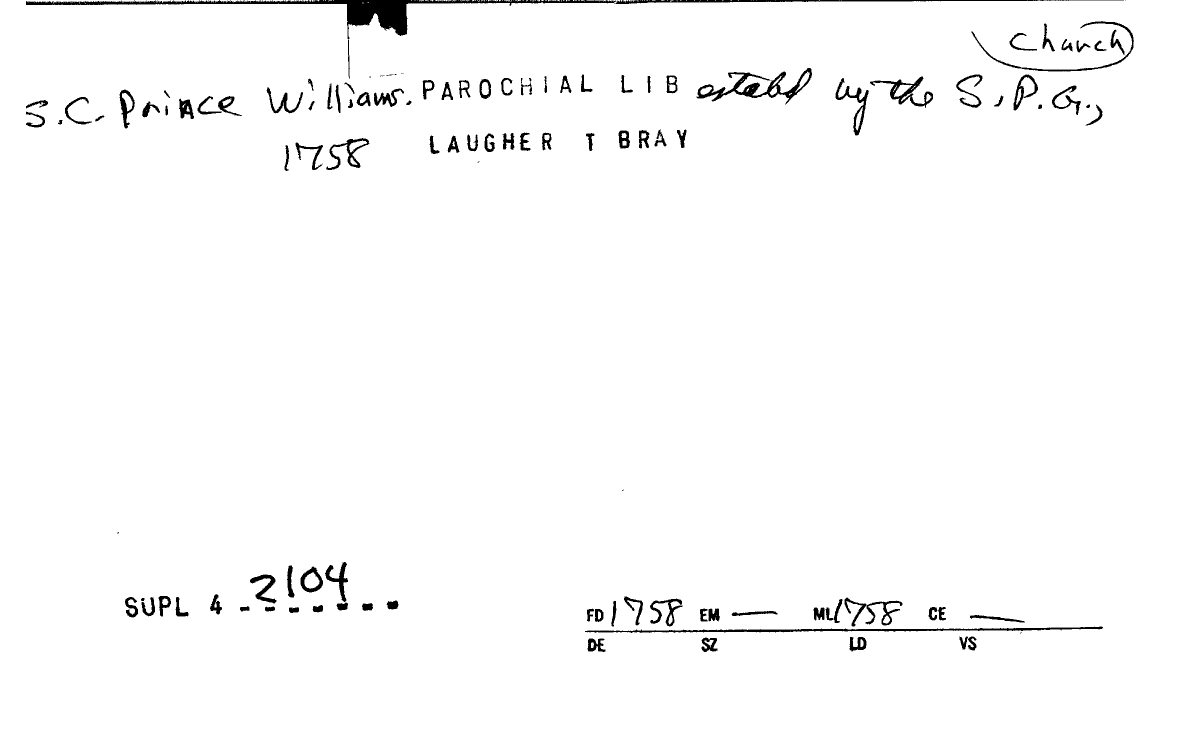 Church
S.C. Prince Williams. PAROCHIAL LIB establd by the S.P.G.,
1758 LAUGHER T BRAY
SUPL 4 2104
FD 1758 EM — ML 1758 CE —
DE SZ LD VS